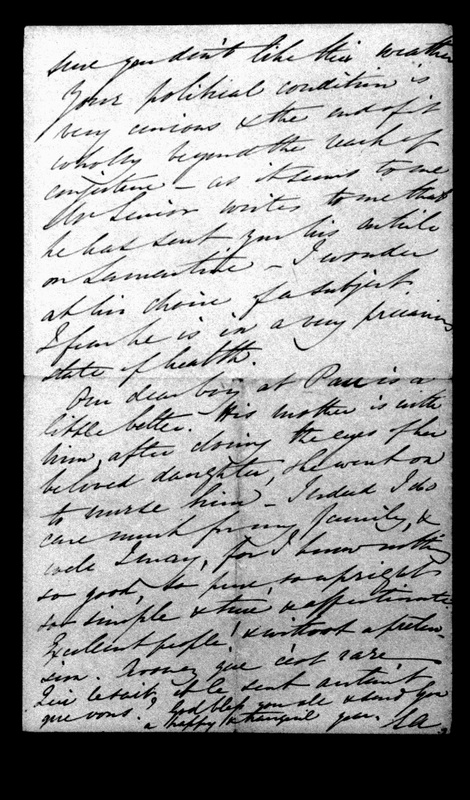 sure you don't like this weather
Your political condition is
very curious & the end of it
wholly beyond the reach of
conjecture – as it seems to me
Mr Senior writes to me that
he has sent you his article
on Lamartine – I wonder
at his choice of a subject
I fear he is in a very precarious
state of health.
Our dear boy at Pau is a
little better. His mother is with
him, after closing the eyes of her
beloved daughter, she went on
to nurse him – Indeed I do
care much for my family, &
well I may, for I know nothing
so good, so pure, so upright
so simple & true & affectionate.
Excellent people! & without a preten-
sion. Avouez que c'est rare
Qui le sait, et le sent autant
que vous? God bless you all & send you
a happy & tranquil year. SA.